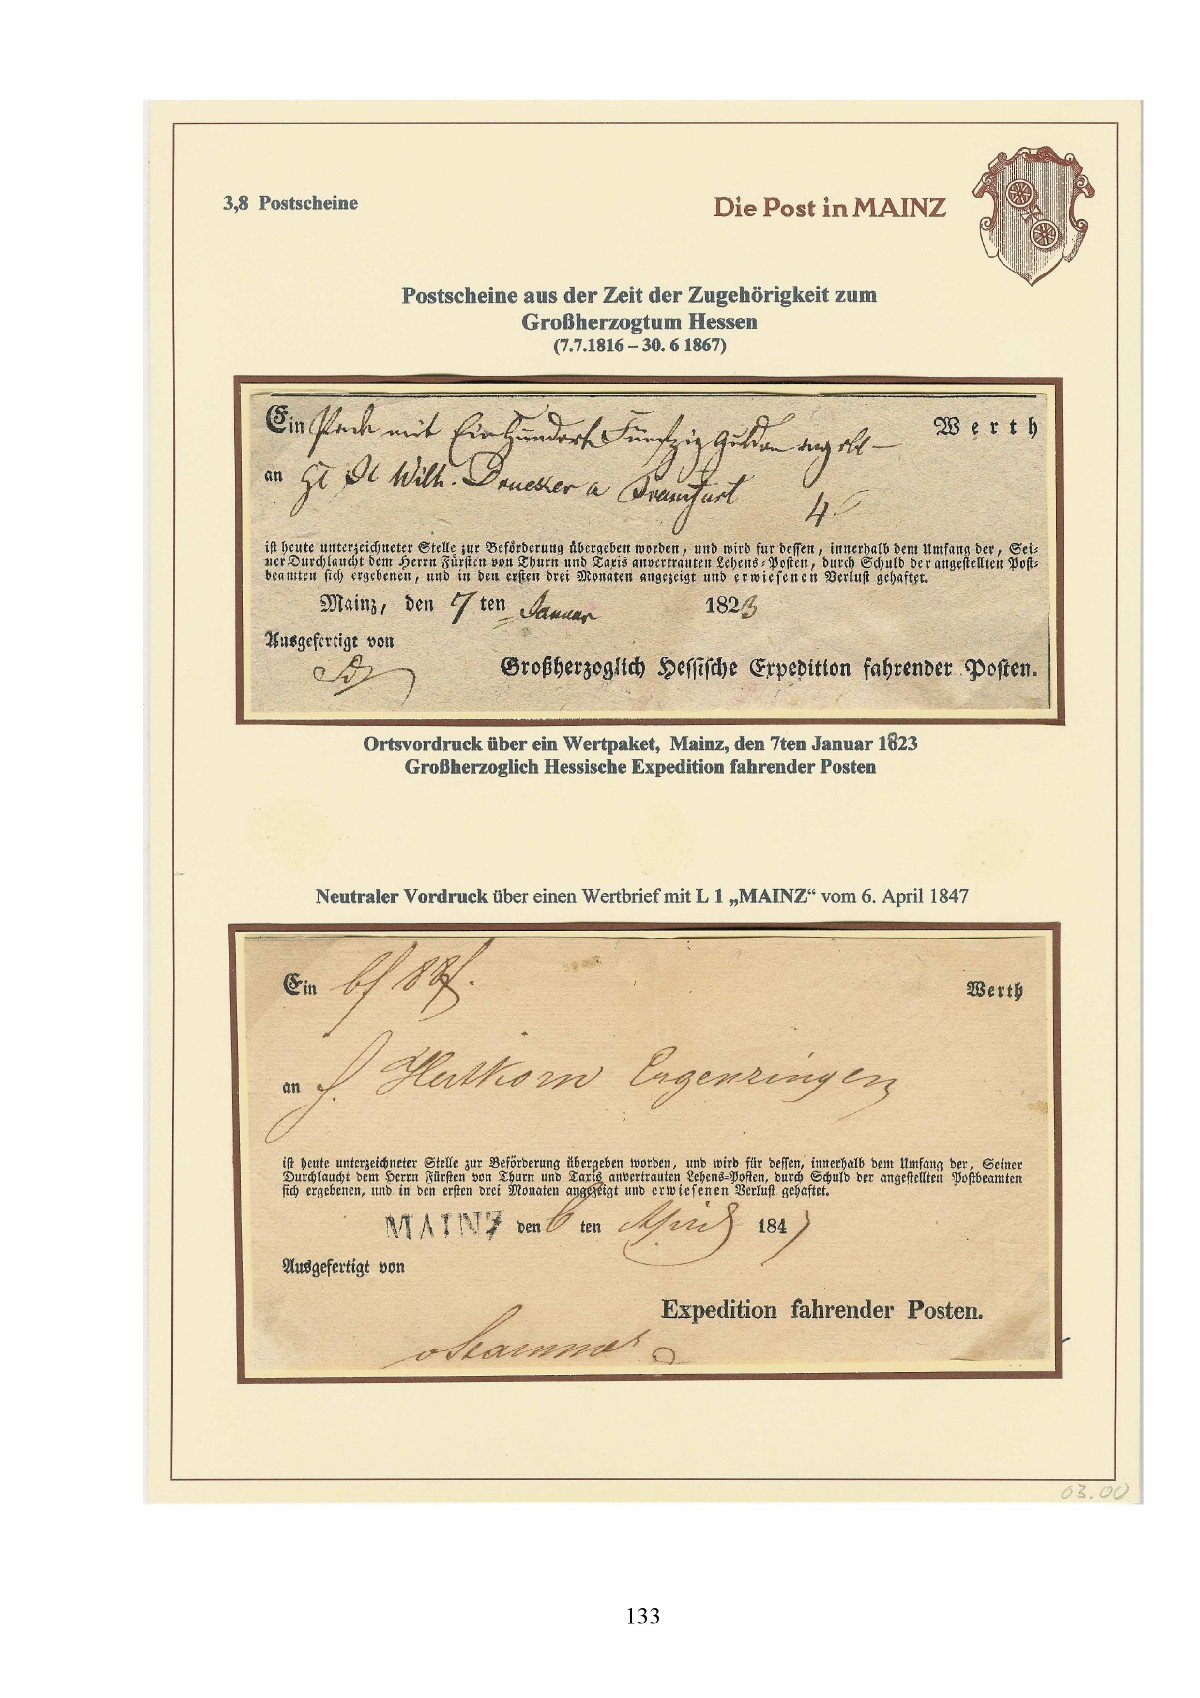 3,8 Postscheine
Die Post in MAINZ
Postscheine aus der Zeit der Zugehörigkeit zum
Großherzogtum Hessen
(7.7.1816 – 30. 6 1867)
Ein Pack mit Einhundert Fünfzig Gulden Werth
an Wilh. Drucker a Frankfurt
4
ist heute unterzeichneter Stelle zur Beförderung übergeben worden, und wird für dessen, innerhalb dem Umfang der, Sei-
ner Durchlaucht dem Herrn Fürsten von Thurn und Taxis anvertrauten Lehens-Posten, durch Schuld der angestellten Post-
beamten sich ergebenen, und in den ersten drei Monaten angezeigt und erwiesenen Verlust gehaftet.
Mainz, den 7 ten Januar 1823
Ausgefertigt von
Großherzoglich Hessische Expedition fahrender Posten.
Ortsvordruck über ein Wertpaket, Mainz, den 7ten Januar 1823
Großherzoglich Hessische Expedition fahrender Posten
Neutraler Vordruck über einen Wertbrief mit L 1 „MAINZ“ vom 6. April 1847
Ein bf 88f. Werth
an J. Hertkorn Ergenzingen
ist heute unterzeichneter Stelle zur Beförderung übergeben worden, und wird für dessen, innerhalb dem Umfang der, Seiner
Durchlaucht dem Herrn Fürsten von Thurn und Taxis anvertrauten Lehens-Posten, durch Schuld der angestellten Postbeamten
sich ergebenen, und in den ersten drei Monaten angezeigt und erwiesenen Verlust gehaftet.
MAINZ den 6 ten April 1847
Ausgefertigt von
Expedition fahrender Posten.
63.00
133